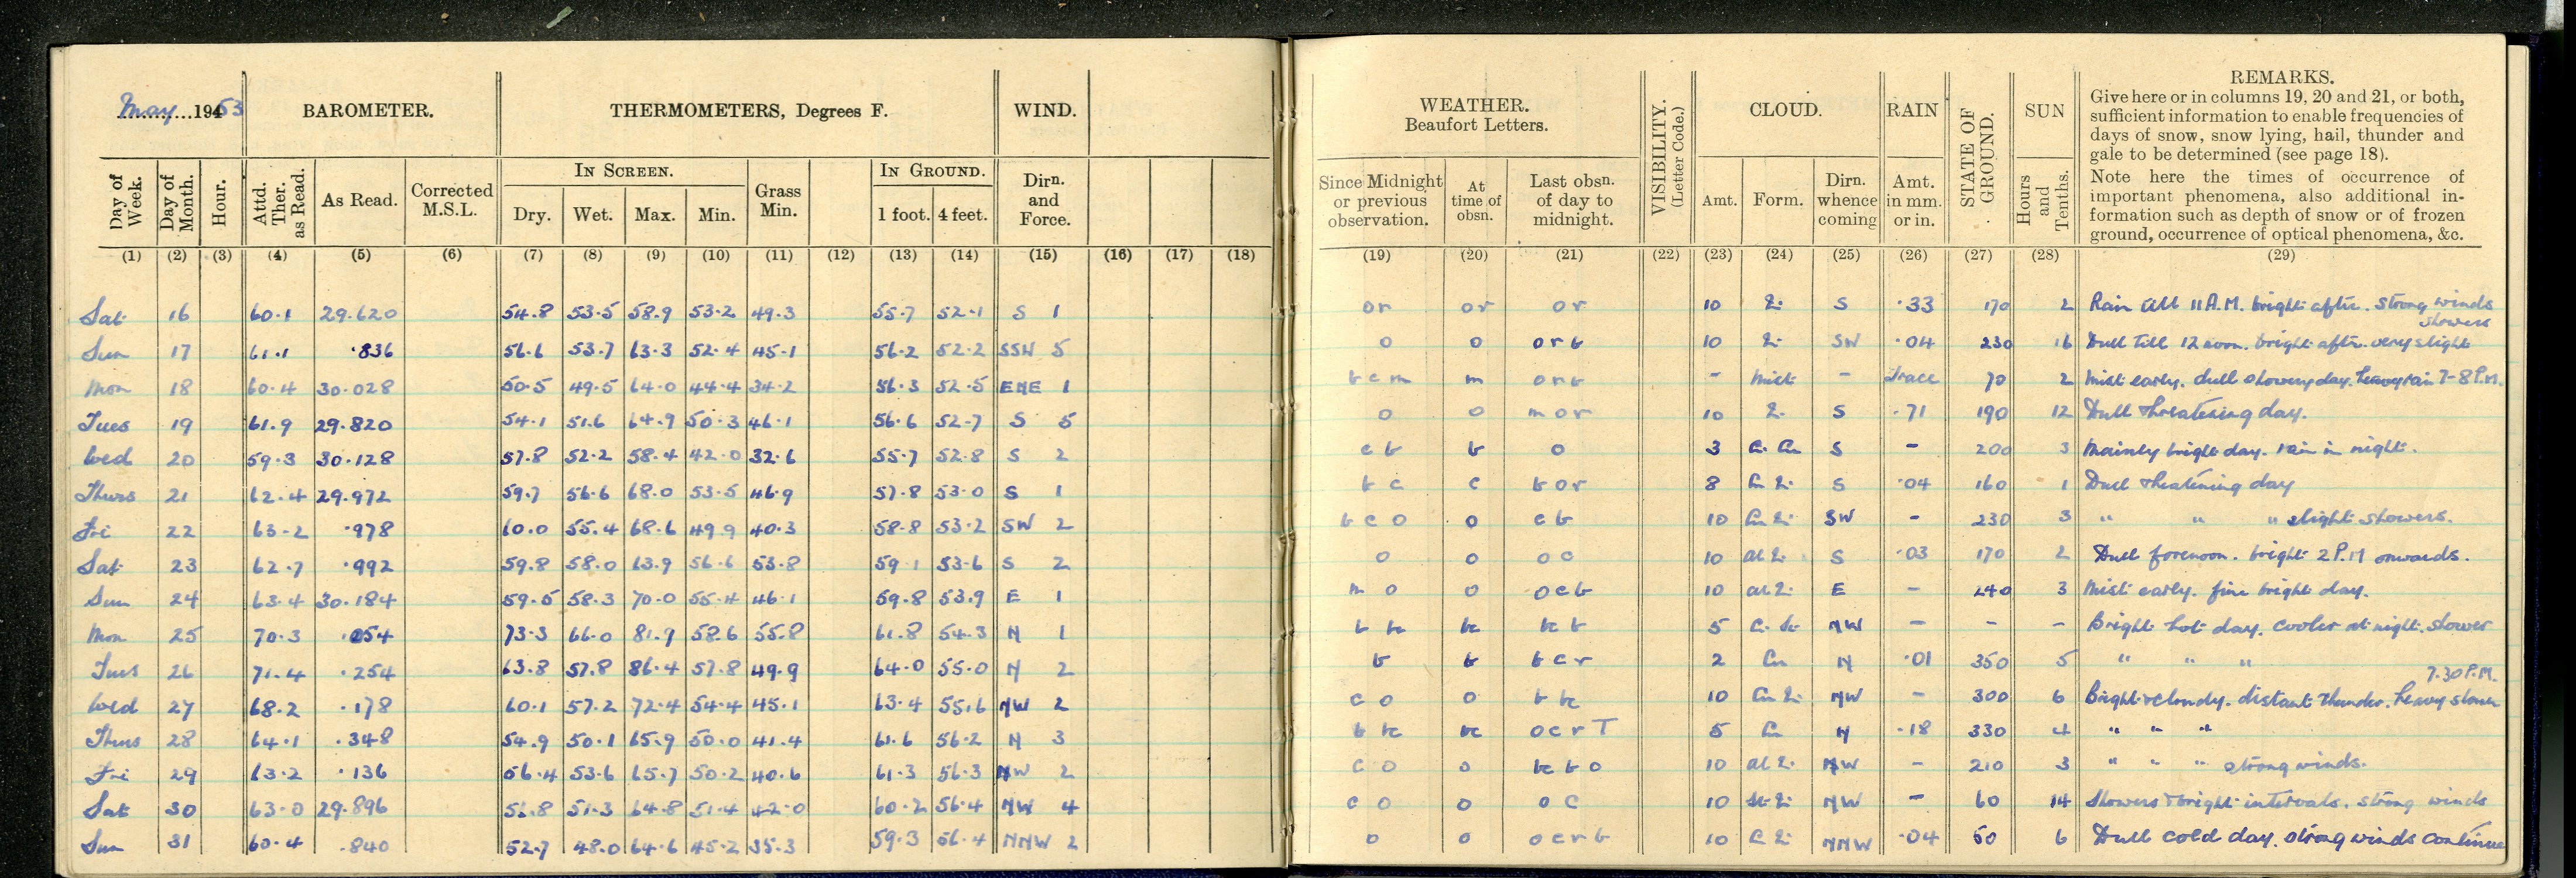 May 1953
BAROMETER.
THERMOMETERS, Degrees F.
WIND.
WEATHER.
Beaufort Letters.
VISIBILITY.
(Letter Code.)
CLOUD.
RAIN
STATE OF
GROUND.
SUN
REMARKS.
Give here or in columns 19, 20 and 21, or both,
sufficient information to enable frequencies of
days of snow, snow lying, hail, thunder and
gale to be determined (see page 18).
Note here the times of occurrence of
important phenomena, also additional in-
formation such as depth of snow or of frozen
ground, occurrence of optical phenomena, &c.
Day of Week.
Day of Month.
Hour.
Attd. Ther. as Read.
As Read.
Corrected M.S.L.
IN SCREEN.
Dry. Wet. Max. Min.
Grass Min.
IN GROUND.
1 foot. 4 feet.
Dirn. and Force.
Since Midnight or previous observation.
At time of obsn.
Last obsn. of day to midnight.
Amt. Form. Dirn. whence coming
Amt. in mm. or in.
Hours and Tenths.
(1) (2) (3) (4) (5) (6) (7) (8) (9) (10) (11) (12) (13) (14) (15) (16) (17) (18) (19) (20) (21) (22) (23) (24) (25) (26) (27) (28) (29)
Sat 16 60.1 29.620 54.8 53.5 58.9 53.2 49.3 55.7 52.1 S 1 or or or 10 S ·33 170 2 Rain till 11 A.M. bright after. strong winds
showers
Sun 17 61.1 ·836 56.6 53.7 63.3 52.4 45.1 56.2 52.2 SSW 5 o o orb 10 SW ·04 230 16 Dull till 12 noon. bright after. very slight
Mon 18 60.4 30.028 50.5 49.5 64.0 44.4 34.2 56.3 52.5 ENE 1 bcm m orb - Mist - Trace 70 2 Mist early. dull showery day. heavy rain 7-8 P.M.
Tues 19 61.9 29.820 54.1 51.6 64.9 50.3 46.1 56.6 52.7 S 5 o o mor 10 S ·71 190 12 Dull threatening day.
Wed 20 59.3 30.128 57.8 52.2 58.4 42.0 32.6 55.7 52.8 S 2 cb b o 3 S - 200 3 Mainly bright day. rain in night.
Thurs 21 62.4 29.972 59.7 56.6 68.0 53.5 46.9 57.8 53.0 S 1 bc c bor 8 S ·04 160 1 Dull theatening day
Fri 22 63.2 ·978 60.0 55.4 68.6 49.9 40.3 58.8 53.2 SW 2 bco o cb 10 SW - 230 3 " " " slight showers.
Sat 23 62.7 ·992 59.8 58.0 63.9 56.6 53.8 59.1 53.6 S 2 o o oc 10 S ·03 170 2 Dull forenoon. bright 2 P.M onwards.
Sun 24 63.4 30.184 59.5 58.3 70.0 55.4 46.1 59.8 53.9 E 1 m o o ocb 10 E - 240 3 Mist early. fine bright day.
Mon 25 70.3 ·254 73.3 66.0 81.9 58.6 55.8 61.8 54.3 N 1 b bc bc bc b 5 NW - - - Bright hot day. cooler at night. shower
Tues 26 71.4 ·254 63.8 57.8 86.4 57.8 49.9 64.0 55.0 N 2 b b bcr 2 Cu N ·01 350 5 " " "
7.30 P.M.
Wed 27 68.2 ·178 60.1 57.2 72.4 54.4 45.1 63.4 55.6 NW 2 co o b bc 10 NW - 300 6 Bright & cloudy. distant thunder. heavy shower
Thurs 28 64.1 ·348 54.9 50.1 65.9 50.0 41.4 61.6 56.2 N 3 b bc bc ocrT 5 Cu N ·18 330 4 " " "
Fri 29 63.2 ·136 56.4 53.6 65.7 50.2 40.6 61.3 56.3 NW 2 co o bc b o 10 NW - 210 3 " " " strong winds.
Sat 30 63.0 29.896 56.8 51.3 64.8 51.4 42.0 60.2 56.4 NW 4 co o oc 10 NW - 60 14 Showers & bright intervals. strong winds
Sun 31 60.4 .840 52.7 48.0 64.6 45.2 35.3 59.3 56.4 NNW 2 o o ocrb 10 NNW ·04 50 6 Dull cold day. strong winds continue